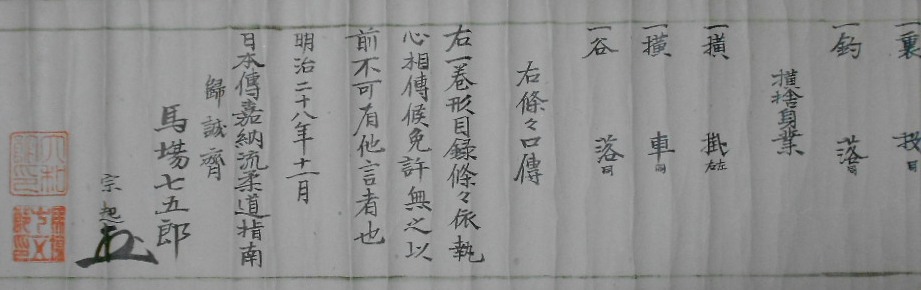 一裏 投 同
一釣 落 同
横捨身業
一横 掛 左右
一横 車 同
一谷 落 同
右條々口傳
右一巻形目録條々依執
心相傳候免許無之以
前不可有他言者也
明治二十八年十一月
日本傳嘉納流柔道指南
歸誠齊
馬場七五郎
宗